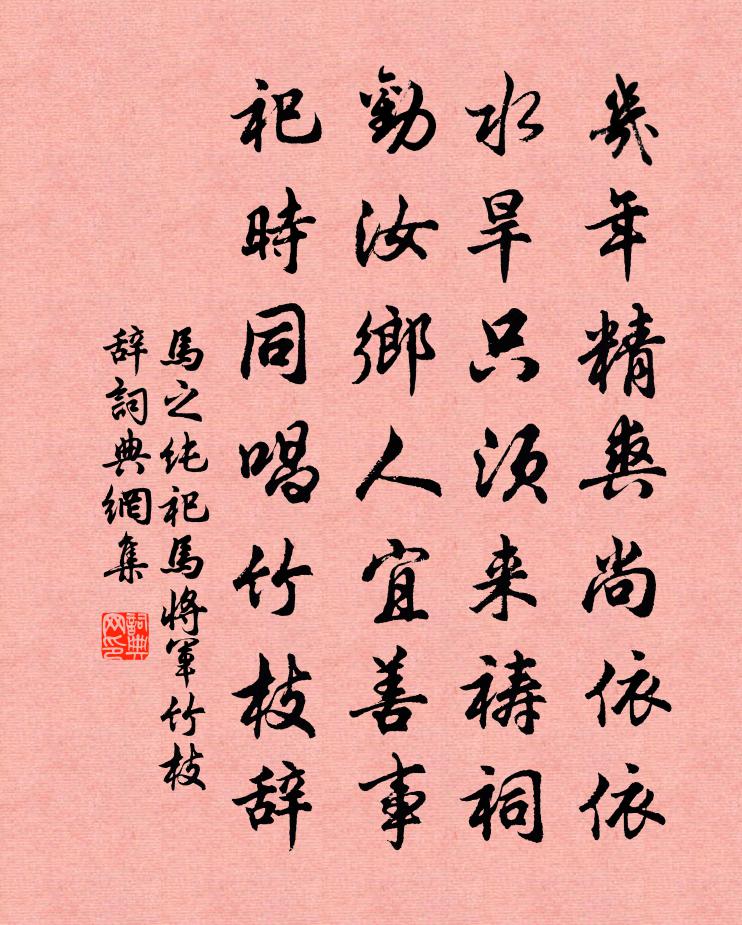 幾年精爽尚依依
水旱只須来祷祠
勸汝鄉人宜善事
祀時同唱竹枝辞
馬之純祀馬將軍竹枝
辞詞典網集
詞典
网印